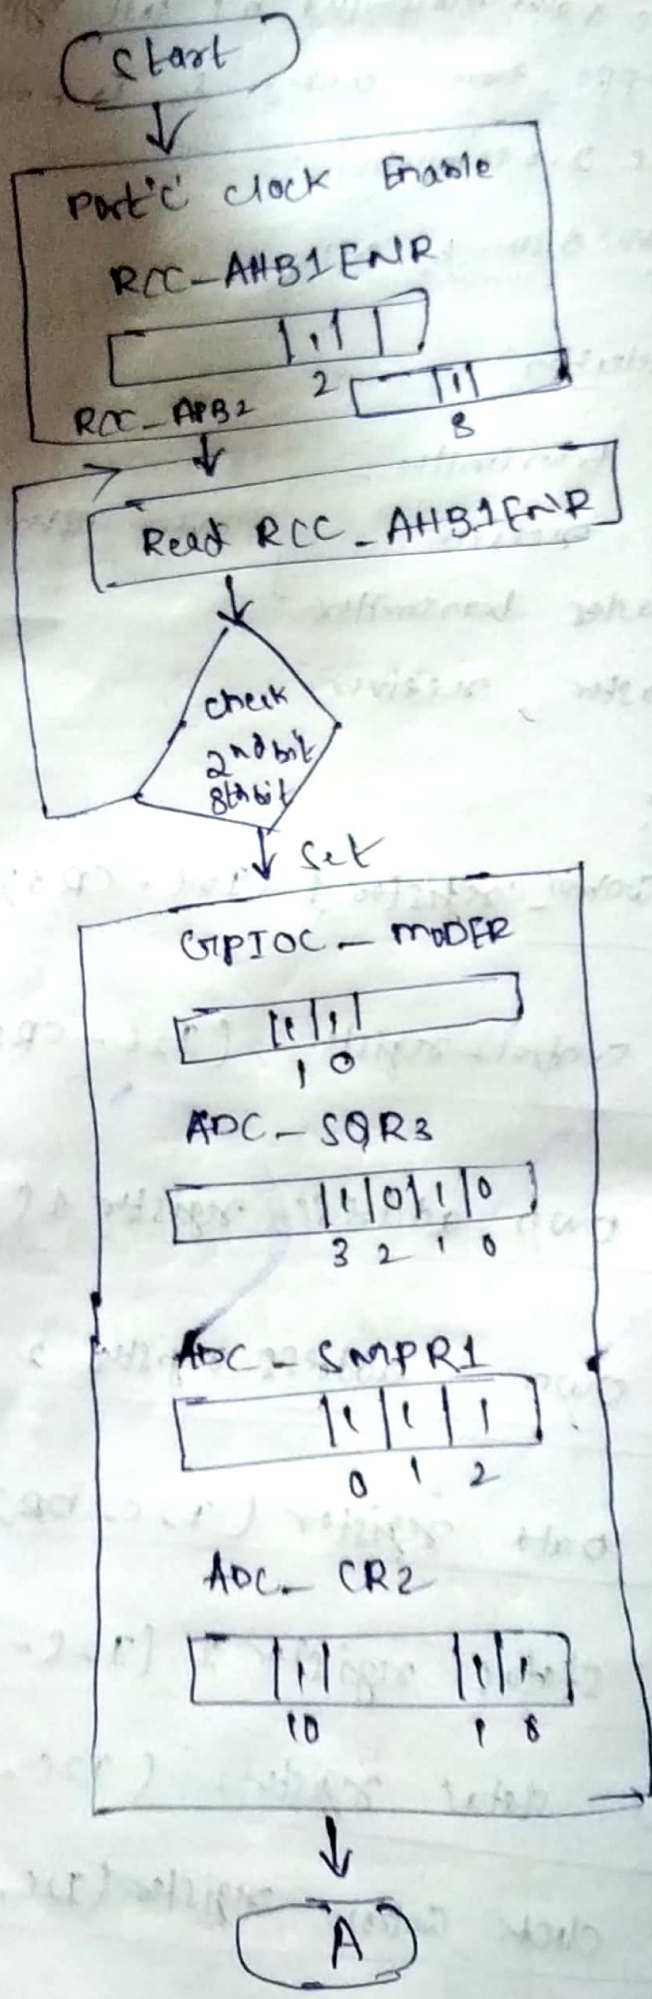 Start
Port 'C' Clock Enable
RCC-AHB1ENR
1
2
RCC-APB2
1
8
Read RCC-AHB1ENR
check
2nd bit
8th bit
Set
GPIOC-MODER
1 1
1 0
ADC-SQR3
1 0 1 0
3 2 1 0
ADC-SMPR1
1 1 1
0 1 2
ADC-CR2
1 1 1
10 1
A